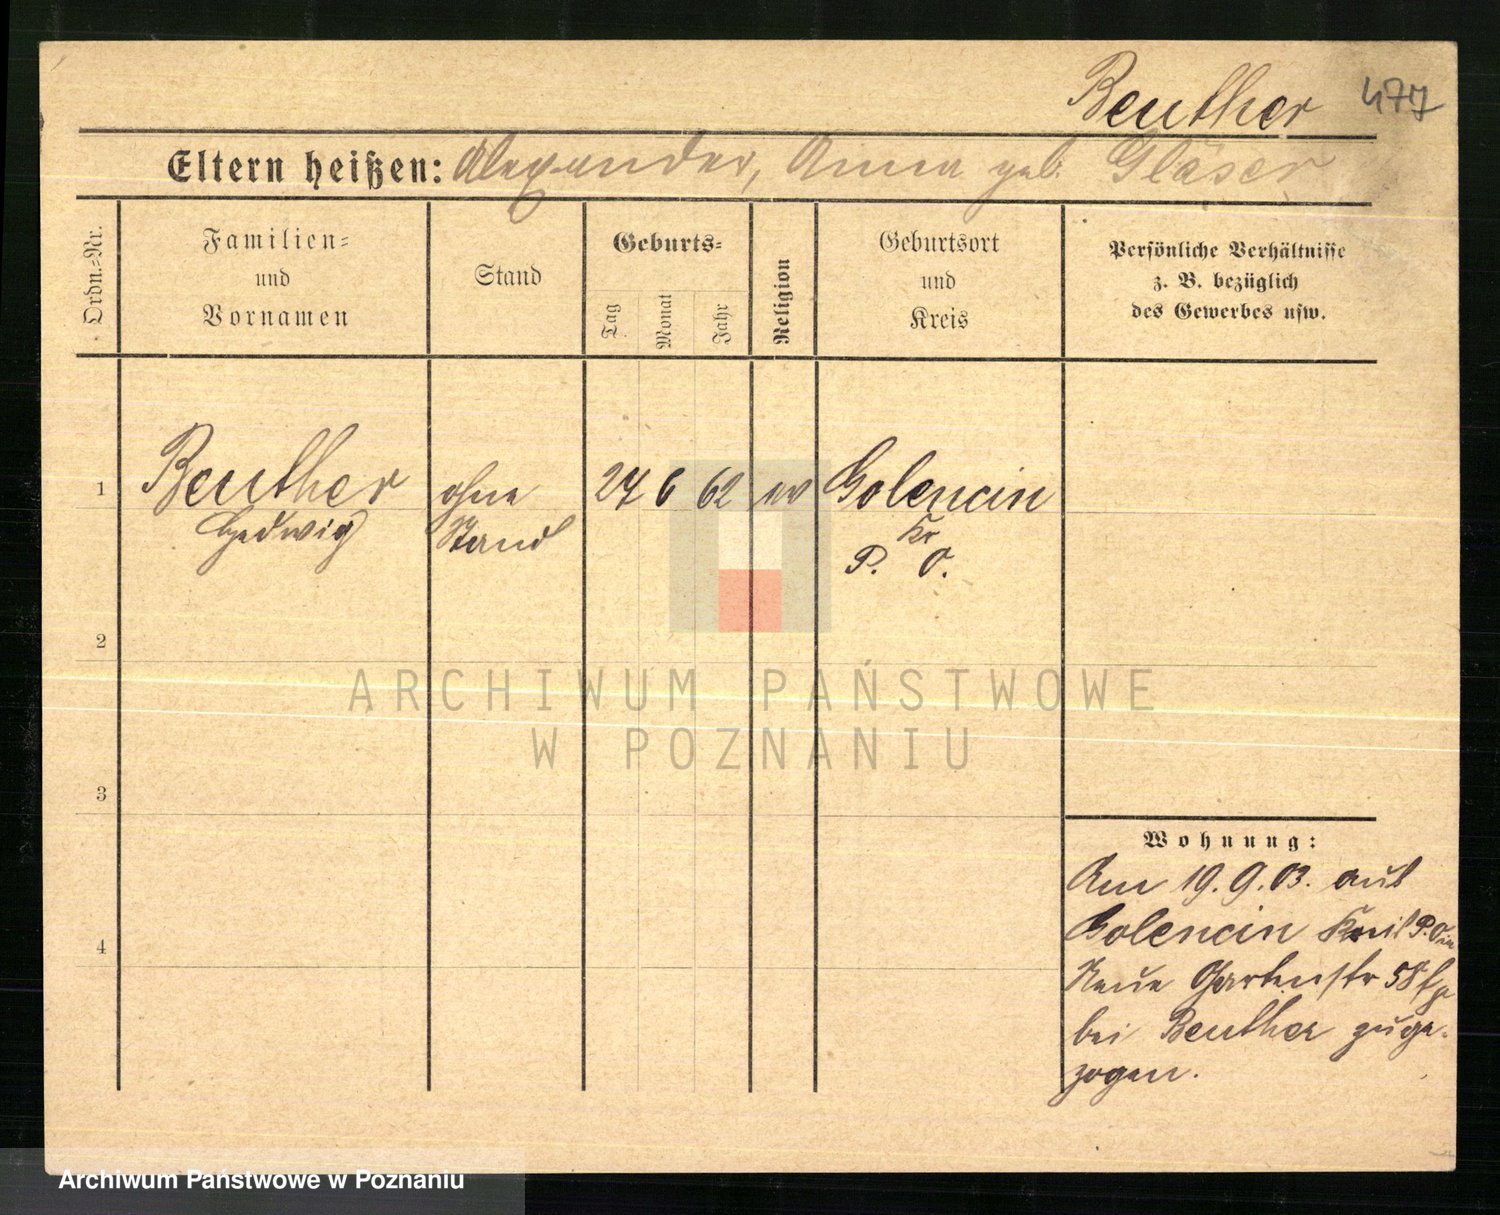 Beuther 477
Eltern heißen: Alexander, Anna geb. Gläser
Ordn.-Nr.
Familien-
und
Vornamen
Stand
Geburts-
Tag
Monat
Jahr
Religion
Geburtsort
und
Kreis
Persönliche Verhältnisse
z. B. bezüglich
des Gewerbes usw.
1 Beuther ohne 27 6 62 ev Golencin
Hedwig Stand Kr
P. O.
2
ARCHIWUM PAŃSTWOWE
W POZNANIU
3
Wohnung:
Am 19.9.03. aus
Golencin Kreis P. O in
4
Neue Gartenstr 58
bei Beuther zuge-
zogen.
Archiwum Państwowe w Poznaniu